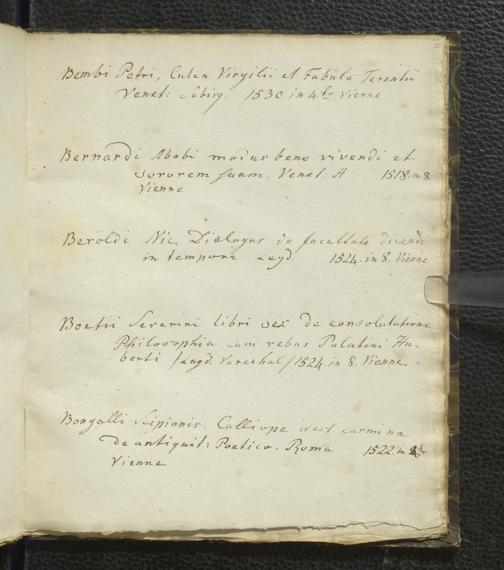 Bembi Petri, Culex Virgilii et Fabula Terentii
Venet: Sabisq. 1530 in 4to Vienne
Bernardi Ababi modus bene vivendi et
sororem suam. Venet: A 1518. in 8.
Vienne
Beroldi Nic. Dialogus de facultate dicendi
in tempore Leyd. 1524. in 8. Vienne
Boetii Sererini libri sex de consolutatione
Philosophia cum rebus Palatini Hu-
berti / Lugd. / 1524. in 8. Vienne.
Bongalli Scipionis. Calliope id est carmina
de antiquit: Poetico. Roma 1522. in
Vienne